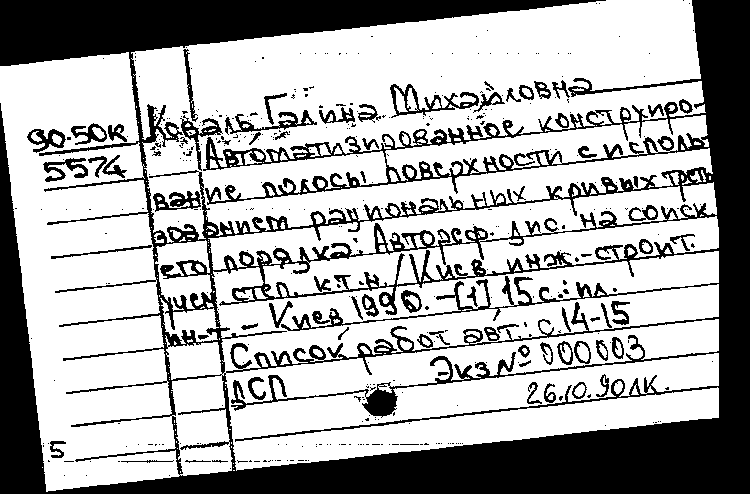 90-50к
5574
Коваль Галина Михайловна
Автоматизированное конструиро-
вание полосы поверхности с исполь-
зованием рациональных кривых треть
его порядка: Автореф. дис. на соиск.
учен. степ. к.т.н. / Киев. инж.-строит.
ин-т. - Киев 1990. - [1] 15 с.: ил.
Список работ авт.: с. 14-15
ДСП Экз № 000003
26.10.90 ЛК.
5